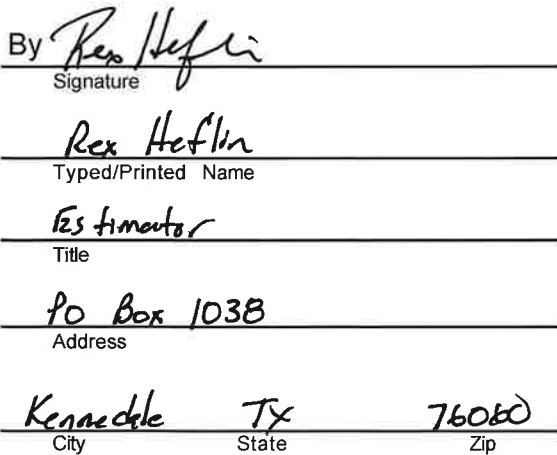 By Rex Heflin
Signature
Rex Heflin
Typed/Printed Name
Estimator
Title
PO Box 1038
Address
Kennedale TX 76060
City State Zip